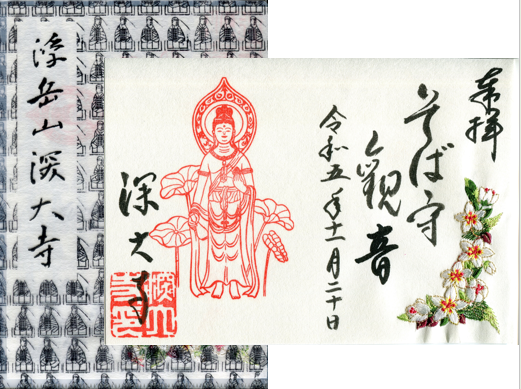 奉拝
そば守
観音
令和五年十一月二十日
深大寺
深大寺印
浮岳山深大寺